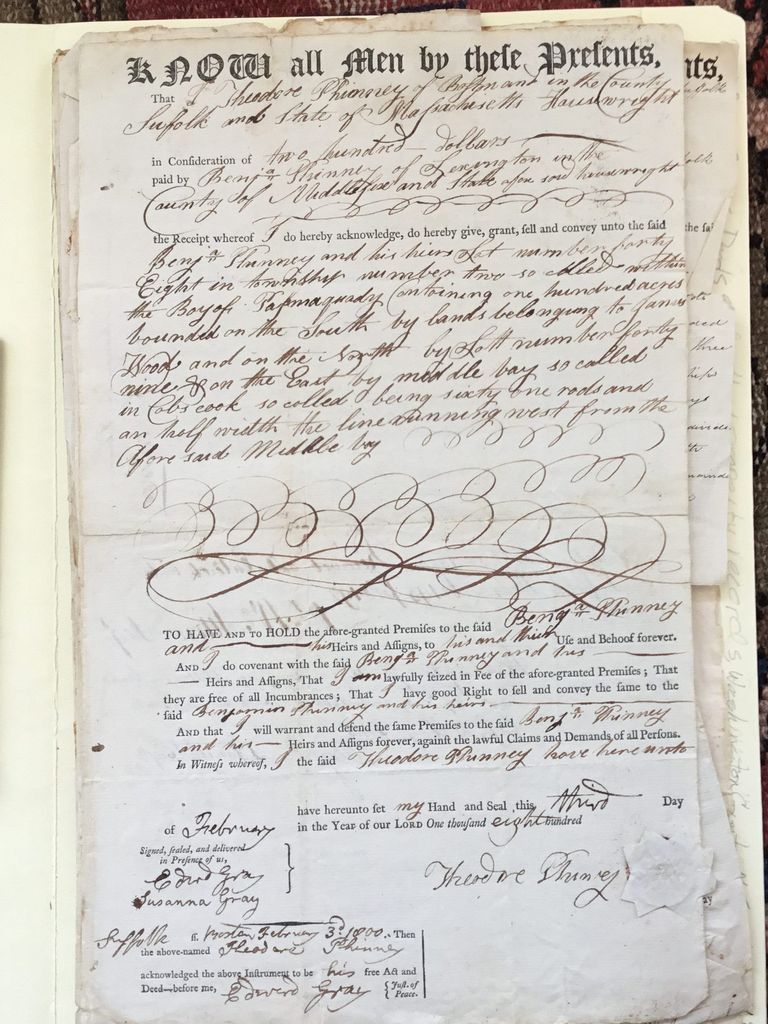 KNOW all Men by these Presents,
That I Theodore Phinney of Boston and in the County
Suffolk and State of Massachusetts Housewright
in Consideration of two hundred dollars
paid by Benjª Phinney of Lexington in the
County of Middlesex and State afore said housewright
the Receipt whereof I do hereby acknowledge, do hereby give, grant, sell and convey unto the said
Benjª Phinney and his heirs Lot number forty
Eight in township number two so called within
the Bay of Pasmaquady Containing one hundred acres
bounded on the South by lands belonging to James
Wood and on the North by Lott number forty
nine & on the East by middle bay so called
in Cobscook so called being sixty one rods and
an half width the line running west from the
Afore said Middle bay
TO HAVE AND TO HOLD the afore-granted Premises to the said Benjª Phinney
and his Heirs and Assigns, to his and their Use and Behoof forever.
AND I do covenant with the said Benjª Phinney and his
Heirs and Assigns, That I am lawfully seized in Fee of the afore-granted Premises; That
they are free of all Incumbrances; That I have good Right to sell and convey the same to the
said Benjamin Phinney and his heirs
AND that I will warrant and defend the same Premises to the said Benjª Phinney
and his Heirs and Assigns forever, against the lawful Claims and Demands of all Persons.
In Witness whereof, I the said Theodore Phinney have here unto
have hereunto set my Hand and Seal this third Day
of February in the Year of our LORD One thousand eight hundred
Signed, sealed, and delivered
in Presence of us,
Edwd Gray
Susanna Gray
Theodore Phinney
Suffolk ss. Boston February 3d 1800. Then
the above-named Theodore Phinney
acknowledged the above Instrument to be his free Act and
Deed—before me, Edward Gray { Just. of Peace.